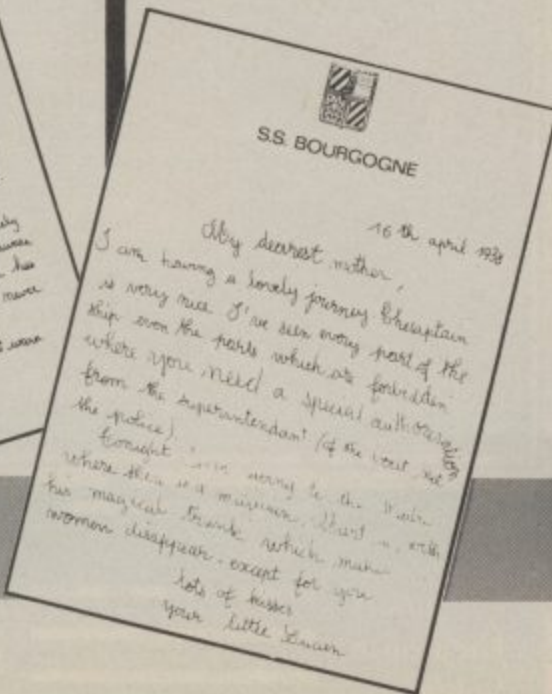 S.S. BOURGOGNE
16 th april 1938
My dearest mother,
I am having a lovely journey
is very nice I've seen every part of the
ship even the parts which are forbidden
where you need a special authorisation
from the superantendant (of the not
the police).
tonight going to the
where there is a with
his magical trunk which
women disappear. except for you
lots of kisses
your little
never